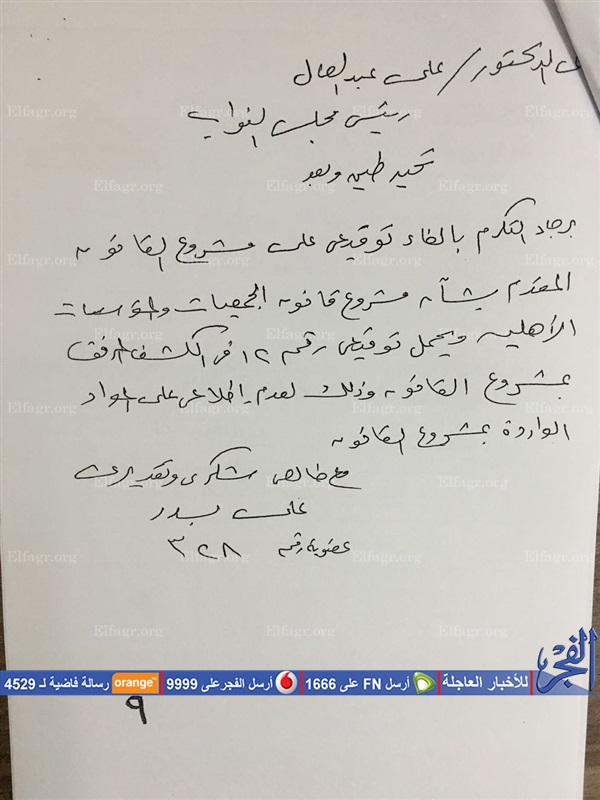 الدكتور / على عبد العال
رئيس مجلس النواب
تحيه طيبه وبعد
برجاء التكرم بالغاء توقيعى على مشروع القانون
المقدم بشأن مشروع قانون الجمعيات والمؤسسات
الأهليه ويحمل توقيعى رقم ١٢ فى الكشف المرفق
بمشروع القانون وذلك لعدم إطلاعى على المواد
الواردة بمشروع القانون
مع خالص شكرى وتقديرى
على بدر
عضوية رقم ٣٢٨
Elfagr.org
الفجر
للأخبار العاجلة أرسل FN على 1666 أرسل الفجر على 9999 orange رسالة فاضية لـ 4529
٩